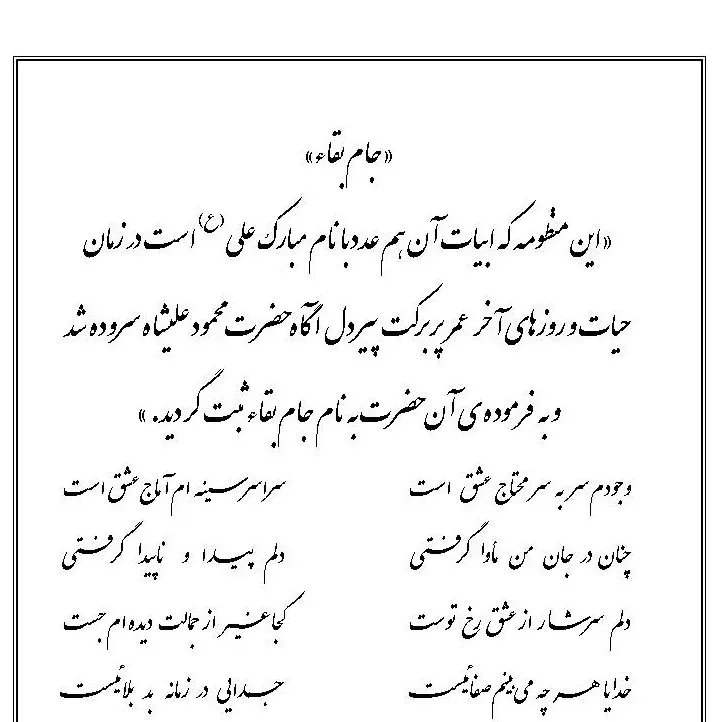 «جام بقاء»
«این منظومه که ابیات آن هم عدد با نام مبارک علی (ع) است در زمان
حیات و روزهای آخر عمر پر برکت پیر دل آگاه حضرت محمود علیشاه سروده شد
و به فرموده ی آن حضرت به نام جام بقاء ثبت گردید.»
وجودم سر به سر محتاج عشق است سراسر سینه ام آماج عشق است
چنان در جان من مأوا گرفتی دلم پیدا و ناپیدا گرفتی
دلم سرشار از عشق رخ توست کجا غیر از جمالت دیده ام جست
خدایا هر چه می بینم صفائیست جدایی در زمانه بد بلائیست